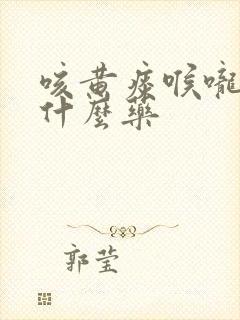 咳黄痰喉嚨
什麼藥
郭莹